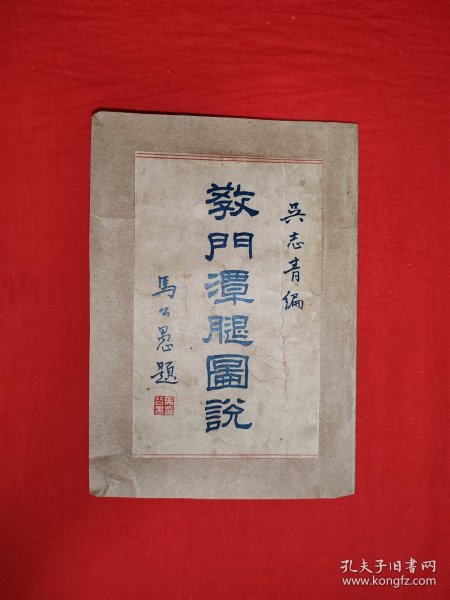 吳志青編
教門潭腿圖說
馬公愚題
孔夫子旧书网
www.kongfz.com